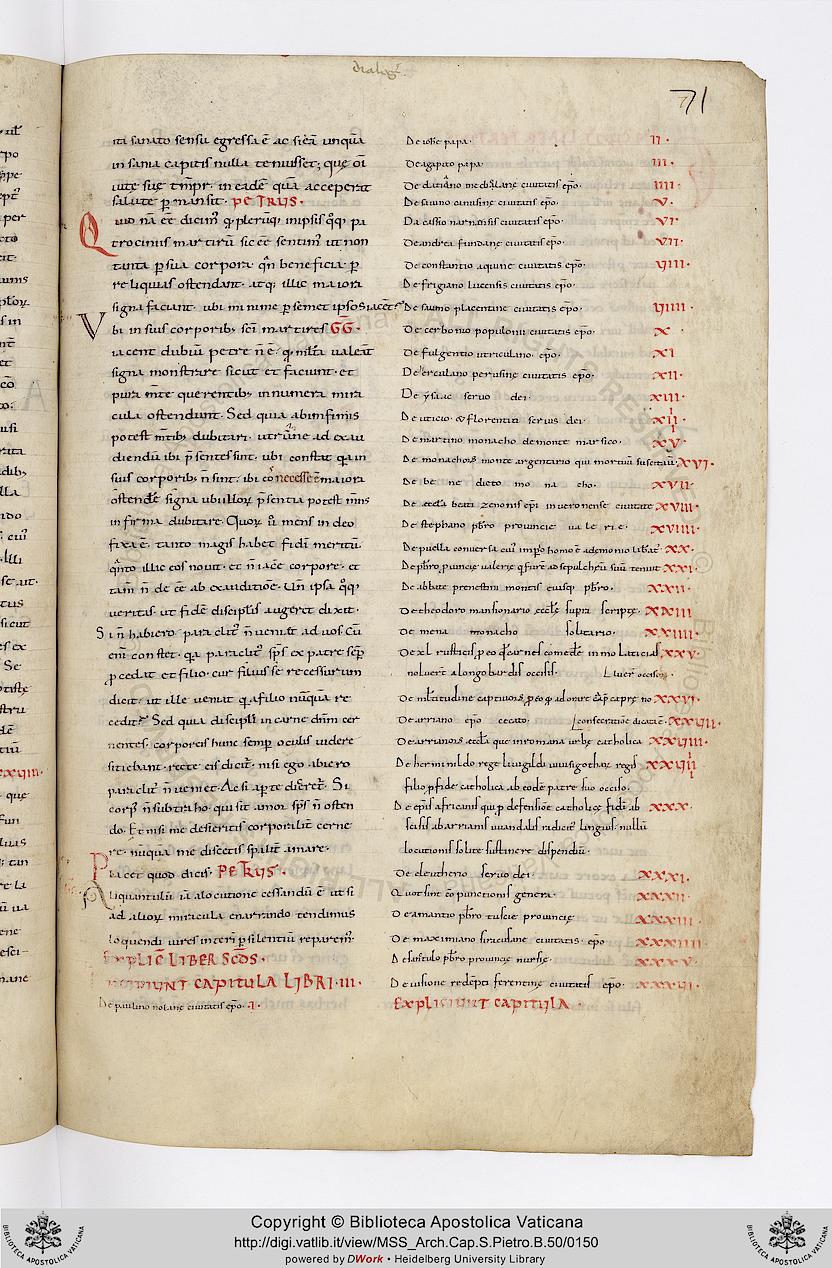 dialog
71
ita sanato sensu egressa ē ac si eā unquā
in sania capitis nulla tenuisset; quę oī
uitę suę tmpr̄ in eadē quā acceperat
salute p̄mansit. PETRUS.
Quid nā ēē dicim' q̄ plerūq; in ipsis q̄q; pa
trociniis martirū sic ēē sentim' ut non
tanta p sua corpora qn̄ beneficia p
reliquias ostendant. atq; illic maiora
signa faciant. ubi minime p semet ipsos iacēt?
Ubi in suis corporib; sc̄i martires GG̅.
iacent dubiū petre n̄ ē. q̄ multa ualeant
signa monstrare sicut et faciunt. et
pura mente querentib; innumera mira
cula ostendunt. Sed quia ab infirmis
potest mtib; dubitari. utrūne ad exau
diendū ibi p̄sentes sint. ubi constat q̄a in
suis corporib; n̄ sint. ibi eos necesse ē maiora
ostendere signa ubi illoꝝ p̄sentia potest mens
infirma dubitare. Quoꝝ u̅ mens in deo
fixa ē. tanto magis habet fidei meritū.
quāto illic eos nouit. et n̄ iacē corpore. et
tam̄ n̄ deēē ab exauditione. Un̄ ipsa q̄q;
ueritas. ut fidē discipulis augeret dixit.
Si n̄ habiero paraclit' n̄ ueniet ad uos. Cū
eni constet. q̄a paraclit' sp̄s ex patre semp
pcedat et filio. cur filius se recessurum
dicit. ut ille ueniat q̄ a filio nūquā re
cedit? Sed quia discipuli in carne dnm cer
nentes. corporeis hunc semp oculis uidere
sitiebant. recte eis dicit'. nisi ego abiero
paraclit' n̄ ueniet. Ac si apte diceret. Si
corp' n̄ subtraho. qui sit amor sp̄s n̄ osten
do. Et nisi me desieritis corporalit' cerne
re. nūquā me discetis spalit' amare.
Placet quod dicis. PETRUS.
Aliquantulū iā a locutione cessandū ē. ut si
ad alioꝝ miracula enarrando tendimus
loquendi uires interi p silentiū reparem'.
EXPLIC̄ LIBER SCDS.
INCIPIUNT CAPITULA LIBRI.III.
De paulino nolanę ciuitatis epo. I.
De iohe papa. II.
De agapito papa. III.
De datiano mediolanę ciuitatis epo. IIII.
De sauino canusinę ciuitatis epo. V.
Da cassio narnensis ciuitatis epo. VI.
De andrea fundanę ciuitatis epo. VII.
De constantio aquinę ciuitatis epo. VIII.
De frigiano lucensis ciuitatis epo.
De sauino placentinę ciuitatis epo. VIIII.
De cerbonio populonii ciuitatis epo. X.
De fulgentio utriculano. epo. XI
De erculano perusinę ciuitatis epo. XII.
De ysaac seruo dei. XIII.
De uticio. & florentio seruis dei. XIIII.
De martino monacho de monte marsico. XV.
De monachos monte argentario qui mortuū suscitauit. XVI.
De benedicto monacho. XVII.
De eccla beati zenonis epi in ueronense ciuitate XVIII.
De stephano pbro prouincię ualerię. XVIIII.
De puella conuersa cui' impio homo ē a demonio liberat'. XX.
De pbro puincię ualerię q̄ furē ad sepulchrū suū tenuit XXI.
De abbate prenestini montis eiusq; pbro. XXII.
De theodoro mansionario ecclę supra scriptę. XXIII
De mena monacho solitario. XXIIII.
De xl rusticis p eo q̄ carnes comedere immolaticias XXV.
noluert̄ a longobardis occisis.
De mltitudine captiuoꝝ p eo q̄ adorare cap̄ caprę no XXVI.
luer̄t occisoꝝ.
De arriano epo cecato. XXVII.
De arrianoꝝ eccla quę in romana urbe catholica XXVIII.
consecratione dicata ē.
De herminildo rege liuuigildi uuisigothaꝝ regis XXVIIII
filio p fide catholica ab eodē patre suo occiso.
De epis africanis qui p defensione catholicę fidei ab XXX.
scisis ab arrianis uuandalis radicitē linguis. nullū
locutionis solitę sustinere dispendiū.
De eleutherio seruo dei. XXXI.
Quot sint cōpunctionis genera. XXXII.
De amantio pbro tuscię prouincię XXXIII.
De maximiano siracusane ciuitatis. epo XXXIIII
De sanctulo pbro prouincię nursię. XXXV.
De uisione redēpti ferentinę ciuitatis epo. XXXVI.
EXPLICIUNT CAPITULA.
Copyright © Biblioteca Apostolica Vaticana
http://digi.vatlib.it/view/MSS_Arch.Cap.S.Pietro.B.50/0150
powered by DWork • Heidelberg University Library